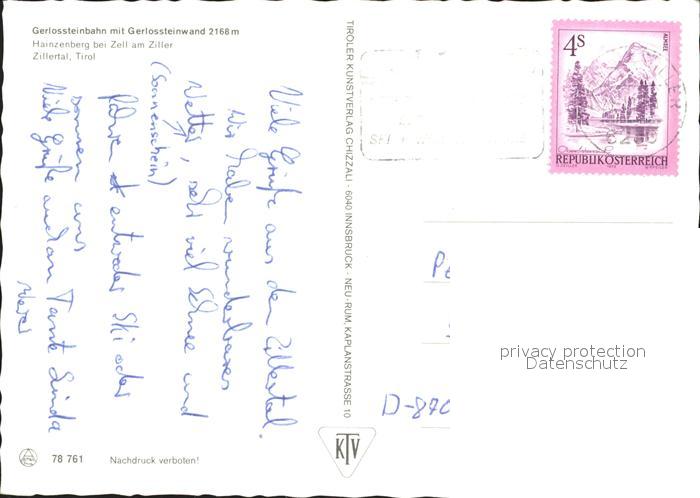 Gerlossteinbahn mit Gerlossteinwand 2168 m
Hainzenberg bei Zell am Ziller
Zillertal, Tirol
Viele Grüße aus dem Zillertal
Wir haben wunderbares
Wetter, sehr viel Schnee und
(Sonnenschein)
fahren entweder Ski oder
sonnen uns
Viele Grüße auch an Tante Linda
78 761
Nachdruck verboten!
TIROLER KUNSTVERLAG CHIZZALI · 6040 INNSBRUCK · NEU-RUM, KAPLANSTRASSE 10
KTV
4S
ALMSEE
REPUBLIK ÖSTERREICH
D-870
privacy protection
Datenschutz